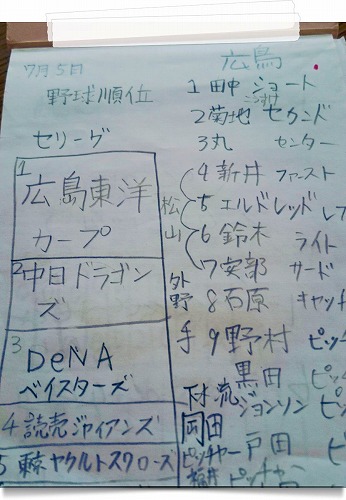 7月5日
野球順位
セリーグ
1
広島東洋
カープ
2 中日ドラゴン
ズ
3
DeNA
ベイスターズ
4 読売ジャイアンズ
5 東京ヤクルトスワローズ
広島
1 田中 ショート
こうすけ
2 菊地 セカンド
3 丸 センター
4 新井 ファースト
5 エルドレッド レフ
6 鈴木 ライト
7 安部 サード
8 石原 キャッチ
9 野村 ピッチ
松山
外野手
黒田 ピッ
下水流
ジョンソン ピ
岡田
ピッチャー
戸田 ピ
福井 ピッチャー